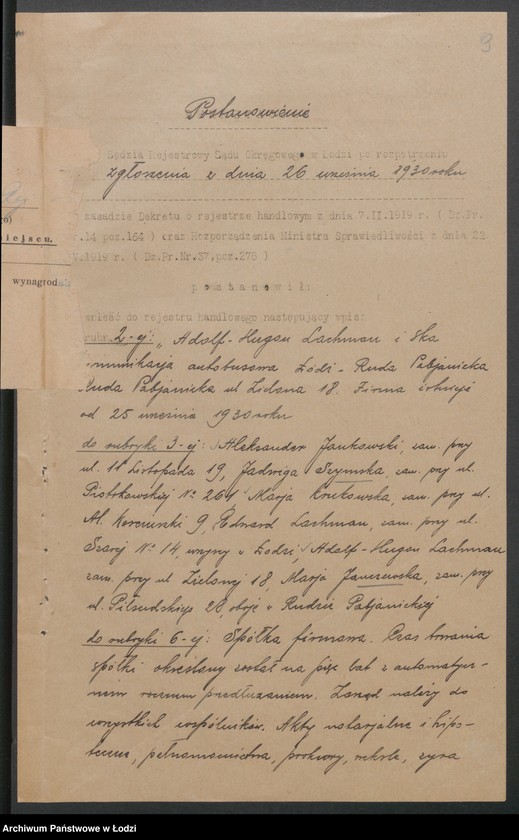 3
Postanowienie
Sędzia Rejestrowy Sądu Okręgowego w Łodzi po rozpatrzeniu
zgłoszenia z dnia 26 września 1930 roku
zasadzie Dekretu o rejestrze handlowym z dnia 7.II.1919 r. ( Dz.Pr.
.14 poz.164 ) oraz Rozporządzenia Ministra Sprawiedliwości z dnia 22
V.1919 r. ( Dz.Pr.Nr.37,poz.278 )
iejscu.
wynagrod
p o s t a n o w i ł:
wnieść do rejestru handlowego następujący wpis:
rubr. 2-ej: „Adolf-Hugon Lachman i Ska
munikacja autobusowa Łódź - Ruda Pabjanicka
Ruda Pabjanicka ul Zielona 18. Firma istnieje
od 25 września 1930 roku
do rubryki 3-ej: Aleksander Jankowski, zam. przy
ul. 11 Listopada 19, Jadwiga Szymska, zam. przy ul.
Piotrkowskiej No 261 Marja Krukowska, zam. przy ul.
Al. 9, Edward Lachman, zam. przy ul.
Szarej No 14, wszyscy w Łodzi, Adolf-Hugon Lachman
zam. przy ul Zielonej 18, Marja Janczewska, zam. przy
ul. Piłsudskiego 28, oboje w Rudzie Pabjanickiej
do rubryki 6-ej: Spółka firmowa. Czas trwania
spółki określony został na pięć lat z automatycz-
nem rocznem przedłużaniem. Zarząd należy do
wszystkich wspólników. Akty notarjalne i hipo-
teczne, pełnomocnictwa, prokury, weksle, żyra
Archiwum Państwowe w Łodzi